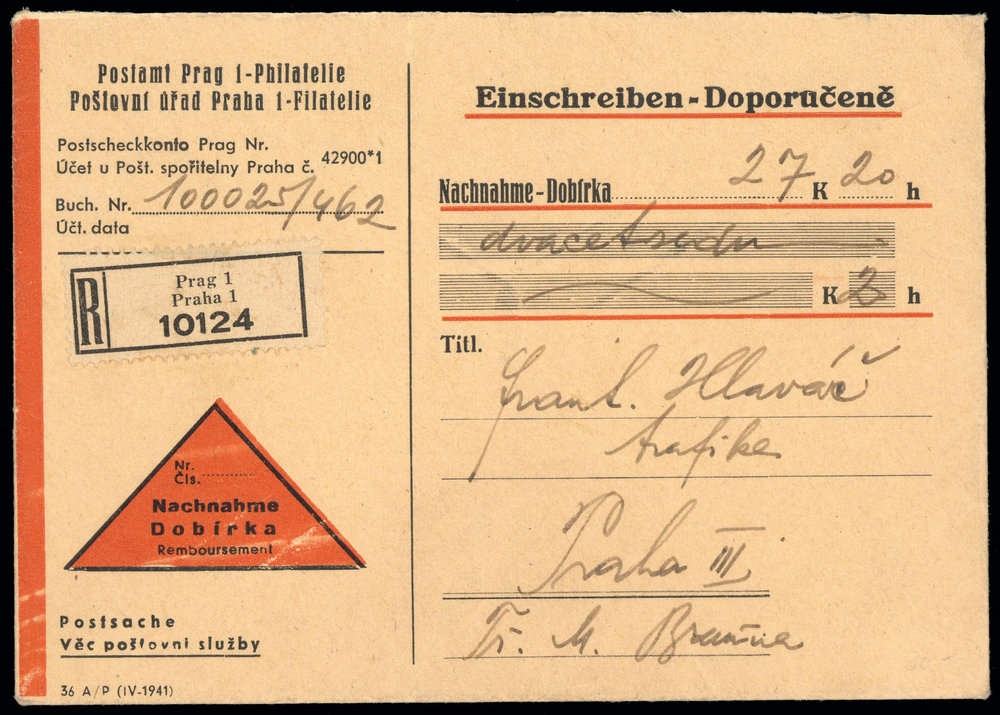 Postamt Prag 1-Philatelie
Poštovní úřad Praha 1-Filatelie
Postscheckkonto Prag Nr.
Účet u Pošt. spořitelny Praha č. 42900*1
Buch. Nr. 100025/462
Účt. data
R
Prag 1
Praha 1
10124
Nr.
Čís.
Nachnahme
Dobírka
Remboursement
Postsache
Věc poštovní služby
36 A/P (IV-1941)
Einschreiben-Doporučeně
Nachnahme-Dobírka 27 K 20 h
dvacetsedm
K h
Titl.
Frant. Hlaváč
trafika
Praha III
Tř. M.